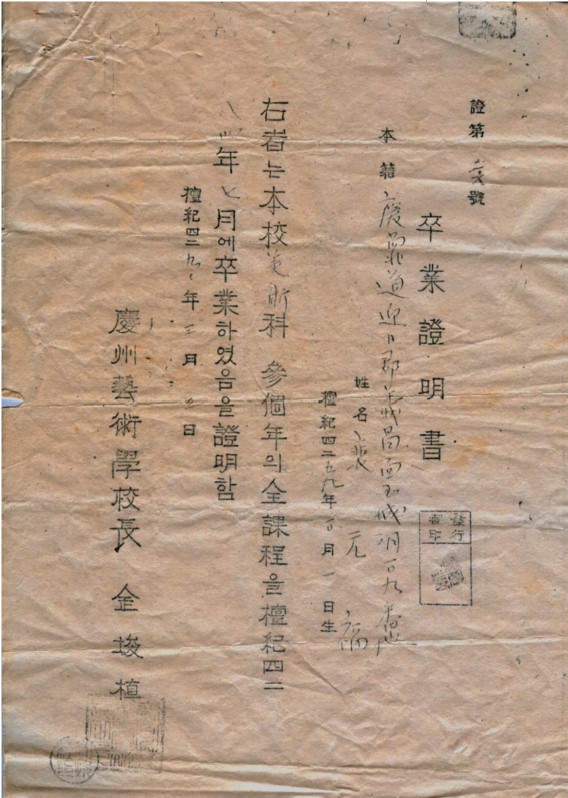 證第 號
卒業證明書
本籍 慶尙道迎日郡 昌面 城洞 一九番地
姓名 張元
檀紀四二五九年 月一日生
右者는本校美術科 參個年의全課程을檀紀四二
年七月에卒業하였음을證明함
檀紀四二九 年三月 日
慶州藝術學校長 金埈植
發行